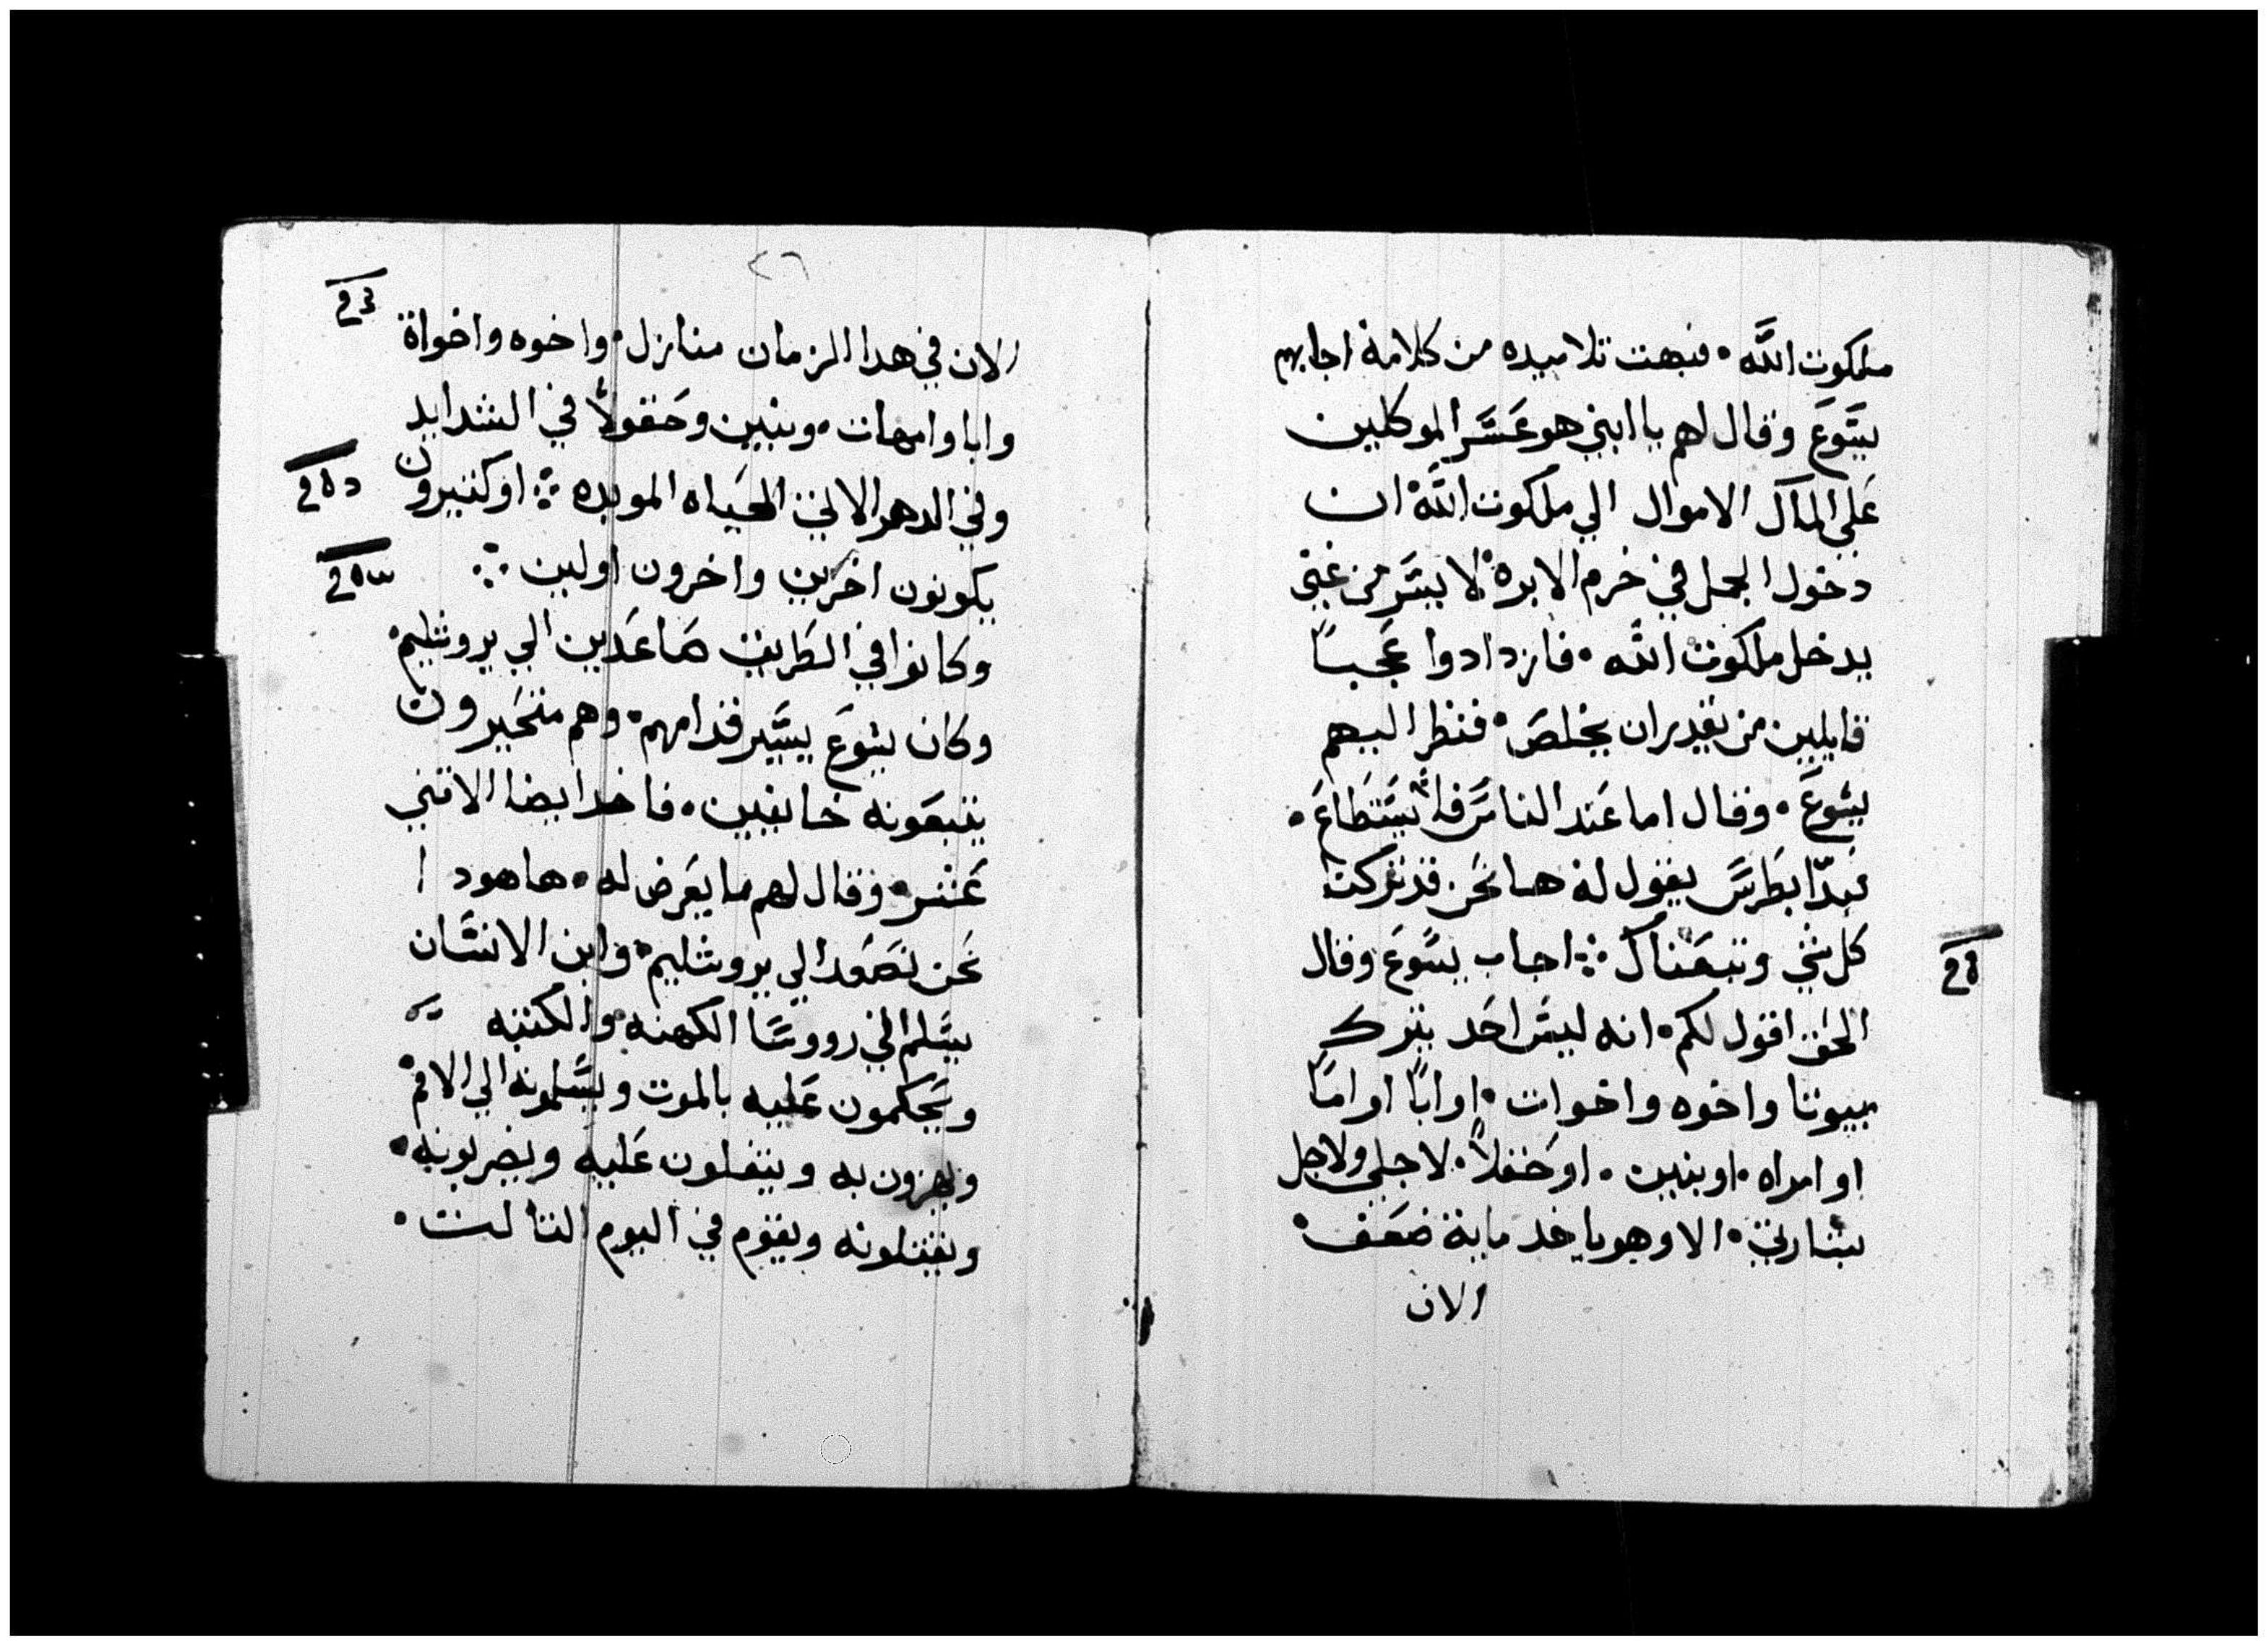 ملكوت الله • فبهت تلاميده من كلامة اجابهم
يسَوعَ وقال لهم يا ابني هو عَسَر الموكلين
عَلي المال الاموال الي ملكوت الله ان
دخول الجمل في خرم الابرة لا يسَر من غني
يدخل ملكوت الله • فازدادوا عَجباً
قايلين من يقدر ان يخلصَ • فنظر اليهم
يسوعَ • وقال اما عَند الناسَ فلا يسَتطاعَ •
فبدّا بطرسَ يقول لة ها نحَن قد تركت
كل شي وتبعَناك ⁘ اجاب يسَوعَ وقال
الحَق اقول لكم • انه ليسَ احَد يترك
بيوتا واخوه واخوات • او اباً او اماً
او امراه • او بنين • او حَقلاً • لاجلي ولاجل
بشارتي • الا وهو ياخد ماية ضعَف •
الان
٢٦
الان في هدا الزمان منازل • واخوه واخواة
وابا وامهات • وبنين وحَقولاً في الشدايد
وفي الدهر الاتي الحَياه الموبده ⁘ او كثيرون
يكونون اخرين واخرون اولين ⁘
وكانوا في الطَريق صَاعَدين الي يروشليم •
وكان يسوعَ يسَير قدامهم • وهم متحَيرون
يتبعَونه خايفين • فاخد ايضا الاتني
عَشر • وقال لهم ما يعَرض له • ها هود ا
نحَن نصَعَد الي يروشليم • وابن الانسَان
يسَلم الي رووسَا الكهنه والكتبه
ويحَكمون عَليه بالموت ويسَلمونه الي الامم
ويهزون به ويتفلون عَليه ويضربونه •
ويقتلونه ويقوم في اليوم التالت •